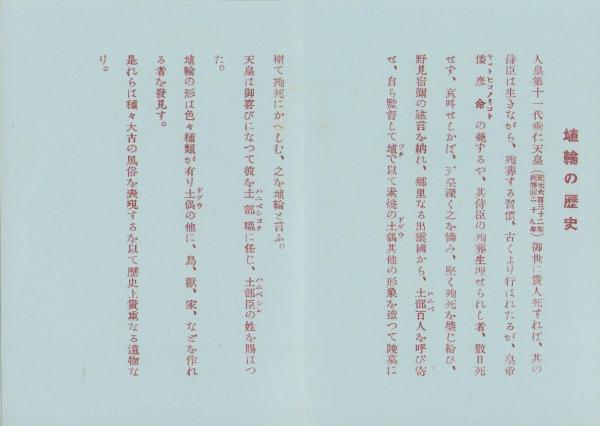 埴輪の歴史
人皇第十一代垂仁天皇(紀元六百三十二年 西暦前二十九年)御世に貴人死すれば、其の
侍臣は生きながら、殉葬する習慣、古くより行ばれたるが、皇帝
倭彦命の薨するや、其侍臣の殉葬生埋せられし者、数日死
せず、哀叫せしかば、天皇深く之を憐み、堅く殉死を禁じ給ひ、
野見宿彌の建言を納れ、郷里なる出雲國から、土部百人を呼び寄
せ、自ら監督して埴で以て素焼の土偶其他の形象を造つて陵墓に
樹て殉死にかへしむ、之を埴輪と言ふ。
天皇は御喜びになつて彼を土部職に任じ、土部臣の姓を賜はつ
た。
埴輪の形は色々種類が有り土偶の他に、鳥、獣、家、などを作れ
る者を發見す。
是れらは種々大古の風俗を表現するを以て歴史上貴重なる遺物な
り。